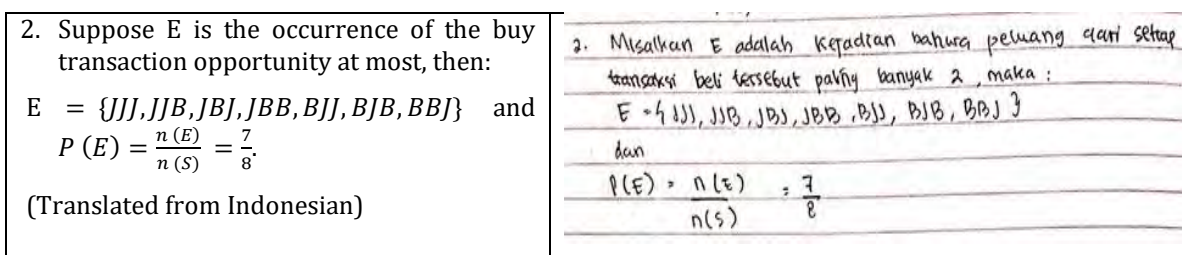 2. Suppose E is the occurrence of the buy
transaction opportunity at most, then:
E = {JJJ, JJB, JBJ, JBB, BJJ, BJB, BBJ} and
P (E) = n (E)/n (S) = 7/8.
(Translated from Indonesian)
2. Misalkan E adalah kejadian bahwa peluang dari setiap
transaksi beli tersebut paling banyak 2, maka :
E = { JJJ, JJB, JBJ, JBB, BJJ, BJB, BBJ }
dan
P(E) = n(E)/n(S) = 7/8